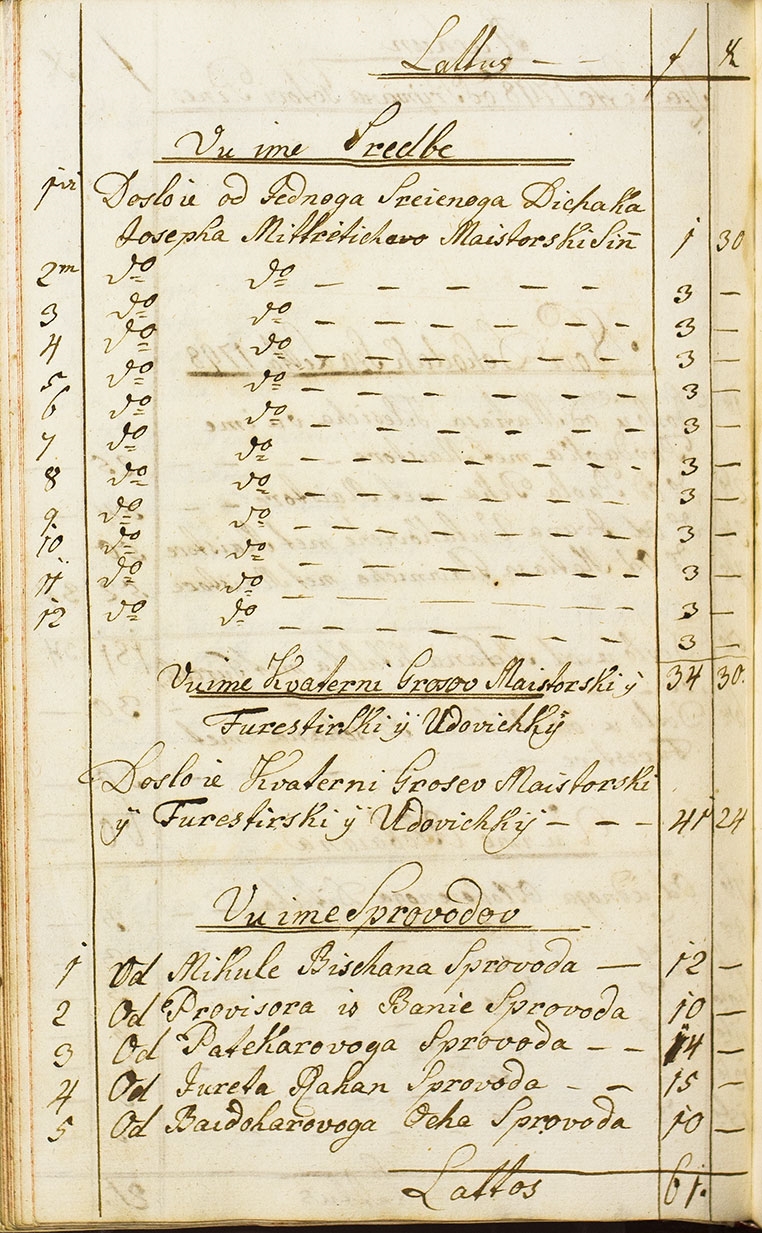 Lattus — — f x
Vu ime Sredbe
1vi Dosloie od Jednoga Sreienoga Dichaka
Josepha Mittretichevo Maistorski Siñ 1 30
2m do do — — — — — 3 —
3 do do — — — — — 3 —
4 do do — — — — — 3 —
5 do do — — — — — 3 —
6 do do — — — — — 3 —
7 do do — — — — — 3 —
8 do do — — — — — 3 —
9 do do — — — — — 3 —
10 do do — — — — — 3 —
11 do do — — — — — 3 —
12 do do — — — — — 3 —
34 30.
Vu ime Kvaterni Grosov Maistorski ÿ
Furestirski ÿ Udovichkÿ
Dosloie Kvaterni Grosev Maistorski
ÿ Furestirski ÿ Udovichkÿ — — — 41 24
Vu ime Sprovodov
1 Od Mikule Bischana Sprovoda — 12 —
2 Od Provisora is Banie Sprovoda 10 —
3 Od Patekarovoga Sprovoda — — 14 —
4 Od Jureta Rahan Sprovoda — — 15 —
5 Od Baidoharovoga Ocha Sprovoda 10 —
Lattos 61.